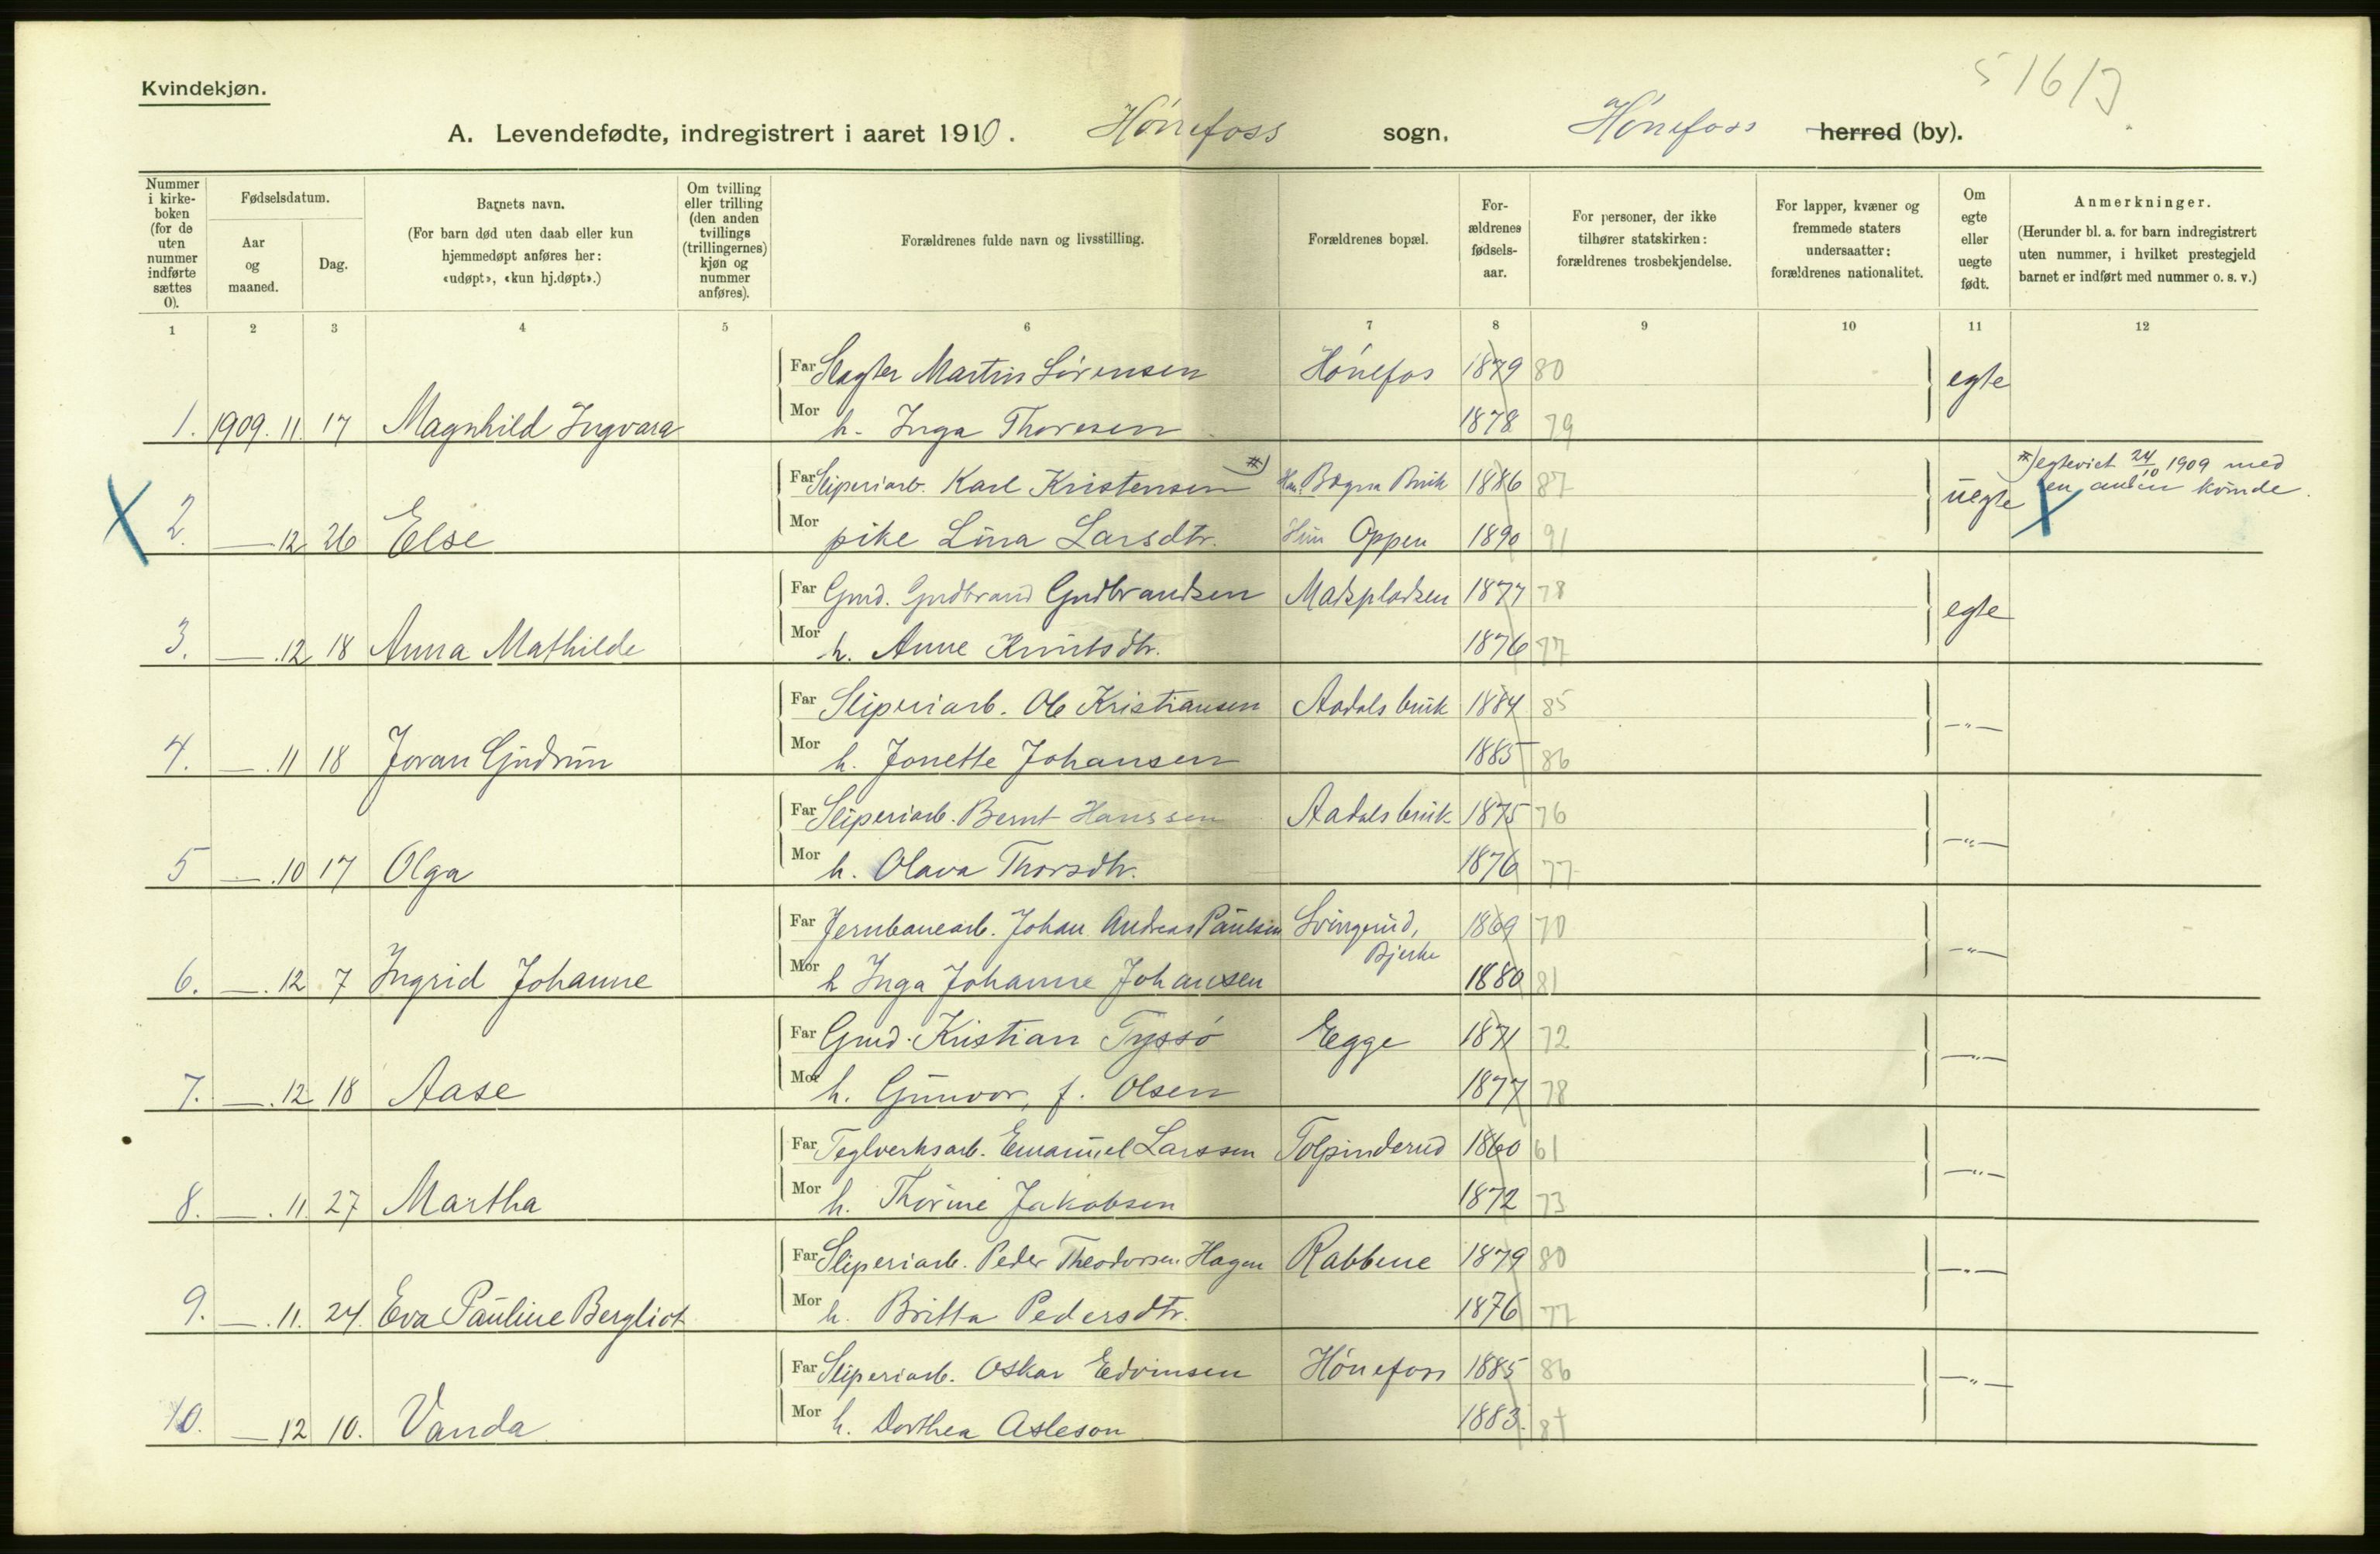 5/6/J
Kvindekjøn.
A. Levendefødte, indregistrert i aaret 1910. Hönefoss sogn. Hönefoss herred (by).
Nummer i kirkeboken (for de uten nummer indførte sættes 0).
Fødselsdatum.
Aar og maaned.
Dag.
Barnets navn.
(For barn død uten daab eller kun hjemmedøpt anføres her: «udøpt», «kun hj.døpt».)
Om tvilling eller trilling (den anden tvillings (trillingernes) kjøn og nummer anføres).
Forældrenes fulde navn og livsstilling.
Forældrenes bopæl.
Forældrenes fødselsaar.
For personer, der ikke tilhører statskirken: forældrenes trosbekjendelse.
For lapper, kvæner og fremmede staters undersaatter: forældrenes nationalitet.
Om egte eller uegte født.
Anmerkninger.
(Herunder bl. a. for barn indregistrert uten nummer, i hvilket prestegjeld barnet er indført med nummer o. s. v.)
1 2 3 4 5 6 7 8 9 10 11 12
Far Slagter Martin Sörensen Hönefos 1879 80 egte
1. 1909. 11. 17 Magnhild Ingvara Mor h. Inga Thoresen 1878 79
Far Sliperiarb. Karl Kristensen #) Han: Bægna Bruk 1886 87 uegte #) egteviet 24/10 1909 med en anden kvinde.
X 2. — 12 26 Else Mor pike Lina Larsdtr. Hun Oppen 1890 91 X
Far Gmd. Gudbrand Gudbrandsen Madspladsen 1877 78 egte
3. —.12 18 Anna Mathilde Mor h. Anne Knutsdtr. 1876 77
Far Sliperiarb. Ole Kristiansen Aadals bruk 1884 85 —"—
4. —.11 18 Joran Gudrun Mor h. Jonette Johansen 1885 86
Far Sliperiarb. Bernt Hanssen Aadals bruk 1875 76 —"—
5 —.10 17 Olga Mor h. Olava Thorsdtr. 1876 77
Far Jernbanearb. Johan Andreas Paulsen Svingerud, Bjerke 1869 70 —"—
6. —.12 7 Ingrid Johanne Mor h Inga Johanne Johansen 1880 81
Far Gmd. Kristian Tyssö Egge 1871 72 —"—
7. —.12 18 Aase Mor h. Gunvor, f. Olsen 1877 78
Far Teglverksarb. Emanuel Larssen Tolpinderud 1860 61 —"—
8. —.11. 27 Martha Mor h. Thorine Jakobsen 1872 73
Far Sliperiarb. Peder Theodorsen Hagen Rabbene 1879 80 —"—
9. —.11. 24 Eva Pauline Bergliot Mor h. Britta Pedersdtr. 1876 77
Far Sliperiarb. Oskar Edvinsen Hönefoss 1885 86 —"—
10. — 12 10. Vanda Mor h. Dorthea Asleson 1883. 84